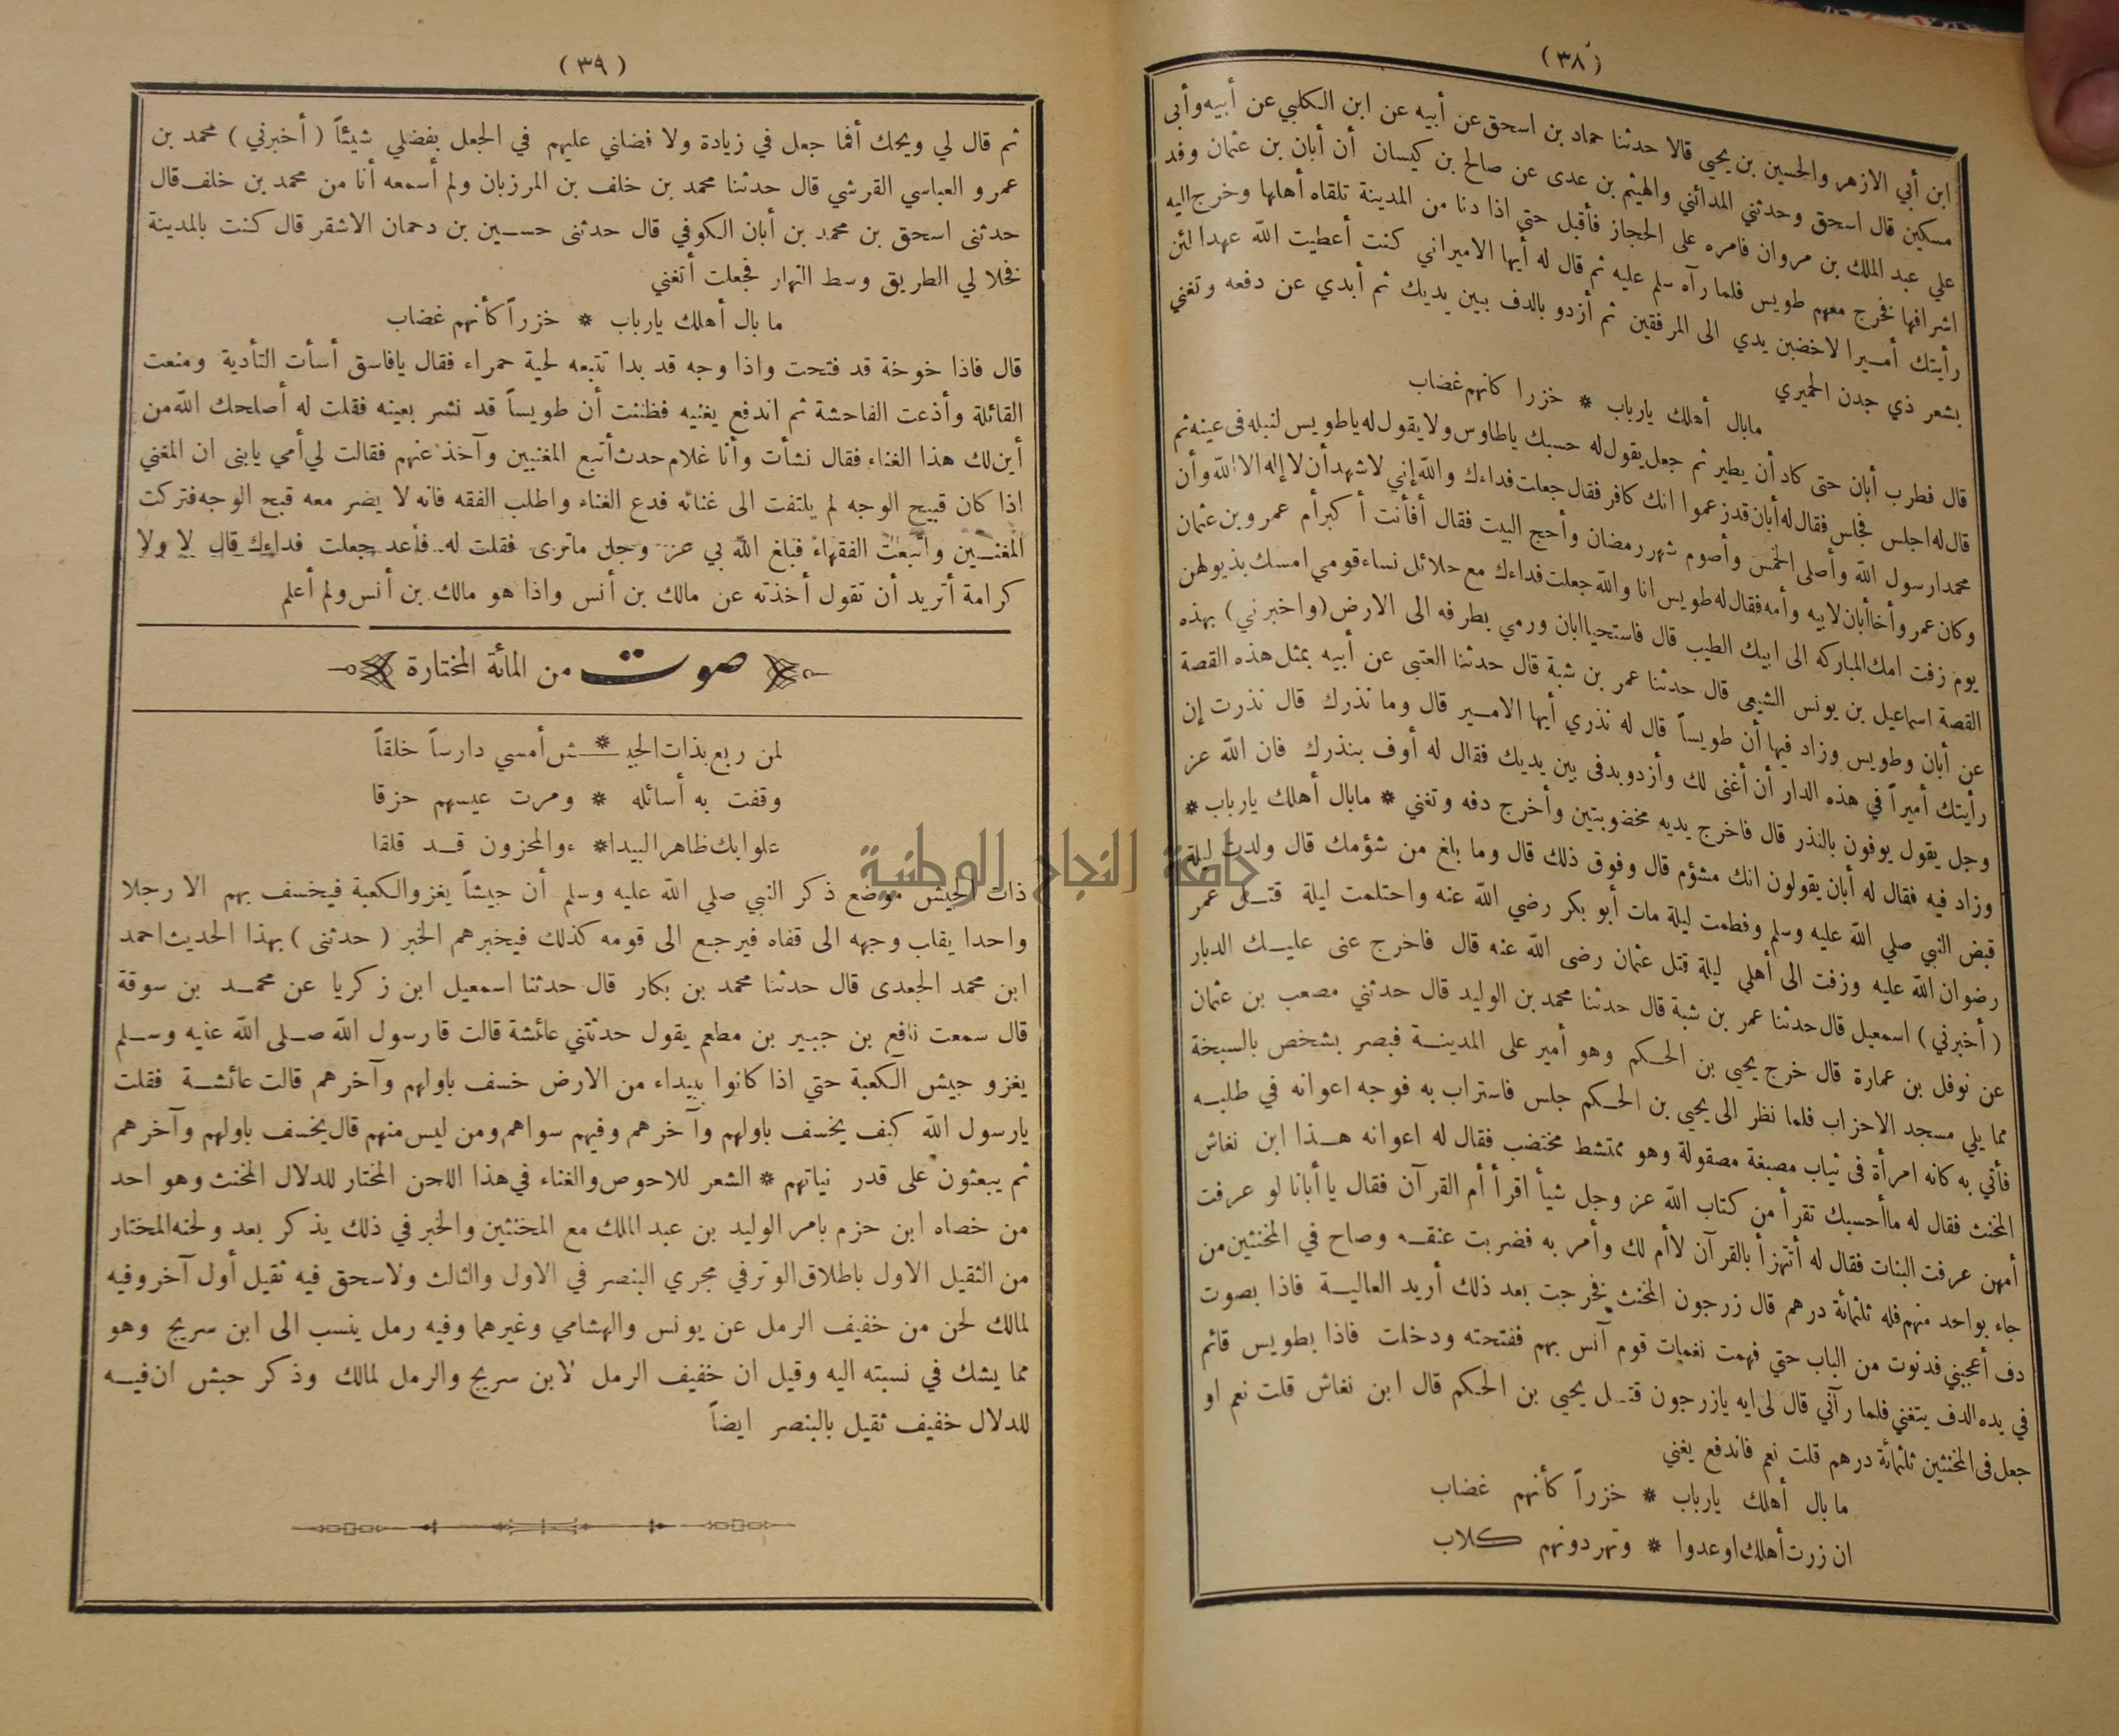 (٣٨)
ابن أبي الازهر والحسين بن يحيى قالا حدثنا حماد بن اسحق عن أبيه عن ابن الكلبي عن أبيه وأبى
مسكين قال اسحق وحدثني المدائني والهيثم بن عدى عن صالح بن كيسان أن أبان بن عثمان وفد
علي عبد الملك بن مروان فامره على الحجاز فأقبل حتى اذا دنا من المدينة تلقاه أهلها وخرج اليه
اشرافها فخرج معهم طويس فلما رآه سلم عليه ثم قال له أيها الامير اني كنت أعطيت الله عهدا لئن
رأيتك أميرا لاخضبن يدي الى المرفقين ثم أزدو بالدف بين يديك ثم أبدي عن دفعه وتغني
بشعر ذي جدن الحميري
مابال أهلك يارباب * خزرا كانهم غضاب
قال فطرب أبان حتى كاد أن يطير ثم جعل يقول له حسبك ياطاوس ولا يقول له ياطويس لنبله في عينه ثم
قال له اجلس فجلس فقال له أبان قد زعموا انك كافر فقال جعلت فداءك والله إني لاشهد أن لا إله الا الله وأن
محمدا رسول الله وأصلى الخمس وأصوم شهر رمضان وأحج البيت فقال أفأنت أكبر أم عمرو بن عثمان
وكان عمرو أخا أبان لابيه وأمه فقال له طويس انا والله جعلت فداءك مع حلائل نساء قومي امسك بذيولهن
يوم زفت امك المباركه الى ابيك الطيب قال فاستحيا ابان ورمي بطرفه الى الارض (واخبرني) بهذه
القصة اسماعيل بن يونس الشيعى قال حدثنا عمر بن شبة قال حدثنا العتبى عن أبيه بمثل هذه القصة
عن أبان وطويس وزاد فيها أن طويساً قال له نذري أيها الامير قال وما نذرك قال نذرت إن
رأيتك أميراً في هذه الدار أن أغنى لك وأزدو بدفى بين يديك فقال له أوف بنذرك فان الله عز
وجل يقول يوفون بالنذر قال فاخرج يديه مخضوبتين وأخرج دفه وتغني * مابال أهلك يارباب *
وزاد فيه فقال له أبان يقولون انك مشؤم قال وفوق ذلك قال وما بلغ من شؤمك قال ولدت ليلة
قبض النبي صلي الله عليه وسلم وفطمت ليلة مات أبو بكر رضي الله عنه واحتلمت ليلة قتل عمر
رضوان الله عليه وزفت الى أهلي ليلة قتل عثمان رضى الله عنه قال فاخرج عنى عليك الدبار
(أخبرني) اسمعيل قال حدثنا عمر بن شبة قال حدثنا محمد بن الوليد قال حدثني مصعب بن عثمان
عن نوفل بن عمارة قال خرج يحيى بن الحكم وهو أمير على المدينة فبصر بشخص بالسبخة
مما يلي مسجد الاحزاب فلما نظر الى يحيي بن الحكم جلس فاستراب به فوجه اعوانه في طلبه
فأتي به كانه امرأة فى ثياب مصبغة مصقولة وهو ممتشط مختضب فقال له اعوانه هذا ابن نغاش
المخنث فقال له ماأحسبك تقرأ من كتاب الله عز وجل شيأ أقرأ أم القرآن فقال يا أبانا لو عرفت
أمهن عرفت البنات فقال له أتهزأ بالقرآن لاأم لك وأمر به فضربت عنقه وصاح في المخنثين من
جاء بواحد منهم فله ثلثمائة درهم قال زرجون المخنث فخرجت بعد ذلك أريد العالية فاذا بصوت
دف أعجبني فدنوت من الباب حتي فهمت نغمات قوم آنس بهم ففتحته ودخلت فاذا بطويس قائم
في يده الدف يتغني فلما رآني قال لى ايه يازرجون قتل يحيي بن الحكم قال ابن نغاش قلت نعم او
جعل فى المخنثين ثلثمائة درهم قلت نعم فاندفع يغني
مابال أهلك يارباب * خزراً كأنهم غضاب
ان زرت أهلك اوعدوا * وتهر دونهم كلاب
(٣٩)
ثم قال لي ويحك أفما جعل في زيادة ولا فضلني عليهم في الجعل بفضلي شيئاً (أخبرني) محمد بن
عمرو العباسي القرشي قال حدثنا محمد بن خلف بن المرزبان ولم أسمعه أنا من محمد بن خلف قال
حدثنى اسحق بن محمد بن أبان الكوفي قال حدثنى حسين بن دحمان الاشقر قال كنت بالمدينة
فخلا لي الطريق وسط النهار فجعلت أتغني
مابال أهلك يارباب * خزراً كأنهم غضاب
قال فاذا خوخة قد فتحت واذا وجه قد بدا تتبعه لحية حمراء فقال يافاسق أسأت التأدية ومنعت
القائلة وأذعت الفاحشة ثم اندفع يغنيه فظننت أن طويساً قد نشر بعينه فقلت له أصلحك الله من
أين لك هذا الغناء فقال نشأت وأنا غلام حدث أتبع المغنيين وآخذ عنهم فقالت لي أمي يابنى ان المغني
اذا كان قبيح الوجه لم يلتفت الى غنائه فدع الغناء واطلب الفقه فانه لا يضر معه قبح الوجه فتركت
المغنين واتبعت الفقهاء فبلغ الله بي عز وجل ماترى فقلت له فأعد جعلت فداءك قال لا ولا
كرامة أتريد أن تقول أخذته عن مالك بن أنس واذا هو مالك بن أنس ولم أعلم
صوت من المائة المختارة
لمن ربع بذات الجيـ * ـش أمسي دارساً خلقاً
وقفت به أسائله * ومرت عيسهم حزقا
علوا بك ظاهر البيدا * ء والمحزون قد قلقا
ذات الجيش موضع ذكر النبي صلي الله عليه وسلم أن جيشاً يغزو الكعبة فيخسف بهم الا رجلا
واحدا يقلب وجهه الى قفاه فيرجع الى قومه كذلك فيخبرهم الخبر (حدثنى) بهذا الحديث احمد
ابن محمد الجعدى قال حدثنا محمد بن بكار قال حدثنا اسمعيل ابن زكريا عن محمد بن سوقة
قال سمعت نافع بن جبير بن مطعم يقول حدثتني عائشة قالت قا رسول الله صلى الله عليه وسلم
يغزو جيش الكعبة حتي اذا كانوا ببيداء من الارض خسف باولهم وآخرهم قالت عائشة فقلت
يارسول الله كيف يخسف باولهم وآخرهم وفيهم سواهم ومن ليس منهم قال يخسف باولهم وآخرهم
ثم يبعثون على قدر نياتهم * الشعر للاحوص والغناء في هذا اللحن المختار للدلال المخنث وهو احد
من خصاه ابن حزم بامر الوليد بن عبد الملك مع المخنثين والخبر في ذلك يذكر بعد ولحنه المختار
من الثقيل الاول باطلاق الوتر في مجري البنصر في الاول والثالث ولاسحق فيه ثقيل أول آخر وفيه
لمالك لحن من خفيف الرمل عن يونس والهشامي وغيرهما وفيه رمل ينسب الى ابن سريج وهو
مما يشك في نسبته اليه وقيل ان خفيف الرمل لابن سريج والرمل لمالك وذكر حبش ان فيه
للدلال خفيف ثقيل بالبنصر ايضاً
جامعة النجاح الوطنية